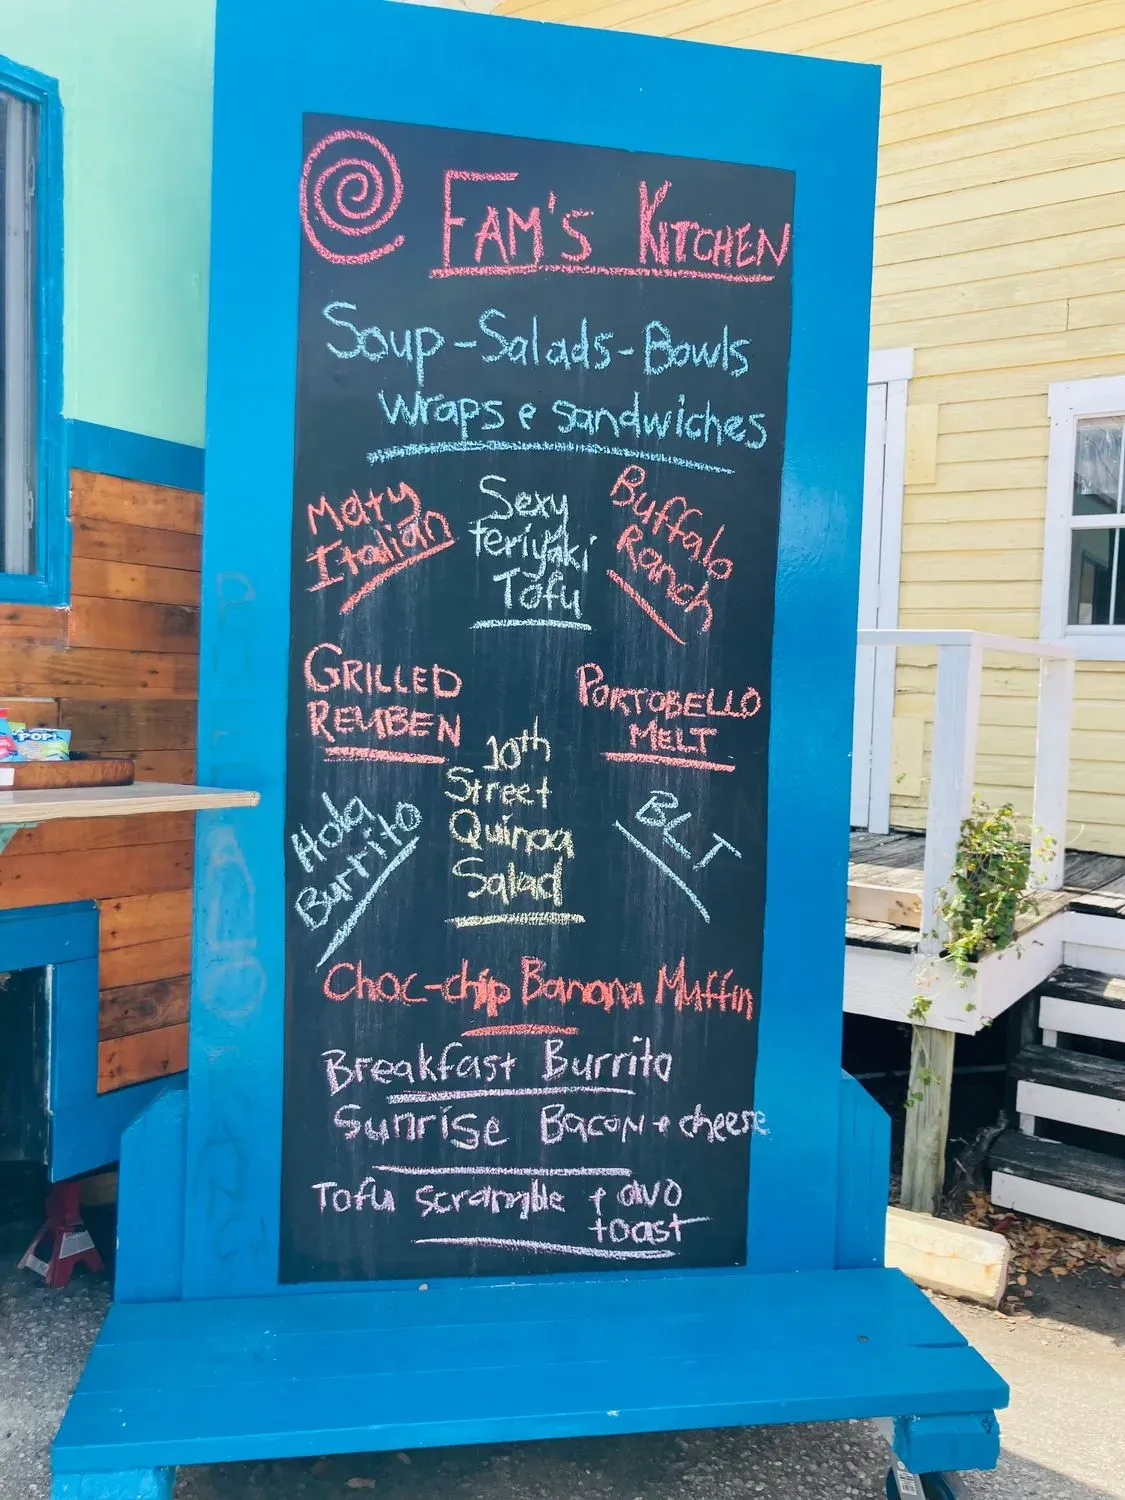 FAM'S KITCHEN
Soup-Salads-Bowls
wraps e sandwiches
Melty
Italian
Sexy
Teriyaki
Tofu
Buffalo
Ranch
GRILLED
REUBEN
PORTOBELLO
MELT
10th
Street
Quinoa
Salad
Hola
Burrito
BLT
Choc-chip Banana Muffin
Breakfast Burrito
Sunrise Bacon + cheese
Tofu scramble + avo
toast
POP!